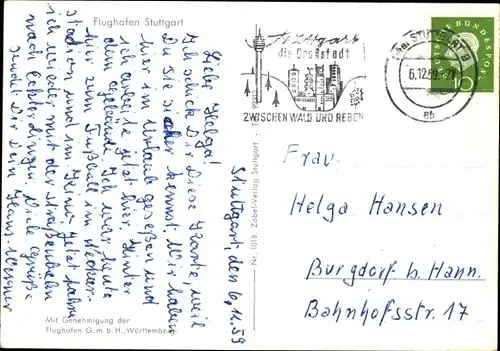 Flughafen Stuttgart
Stuttgart, den 6.12.59
Liebe Helga!
Ich schicke Dir Diese Karte, weil
Du Sie sicher kennst. Wir haben
hier im Urlaub gesessen und
ich arbeite jetzt hier. Hinter
dem Gebäude. Ich war heute
hier zum Fußball im Neckar-
stadion und im Kino. Jetzt fahre
ich wieder mit der Straßenbahn
nach Echterdingen. Viele Grüße
sendet Dir Dein Hans-Werner
Mit Genehmigung der
Flughafen G.m.b.H., Württemberg
Nr. 1018 · Zobel-Verlag Stuttgart
Stuttgart
die Großstadt
ZWISCHEN WALD UND REBEN
STUTTGART 9
6.12.59
ab
DEUTSCHE BUNDESPOST
10
Frau.
Helga Hansen
Burgdorf b. Hann.
Bahnhofsstr. 17